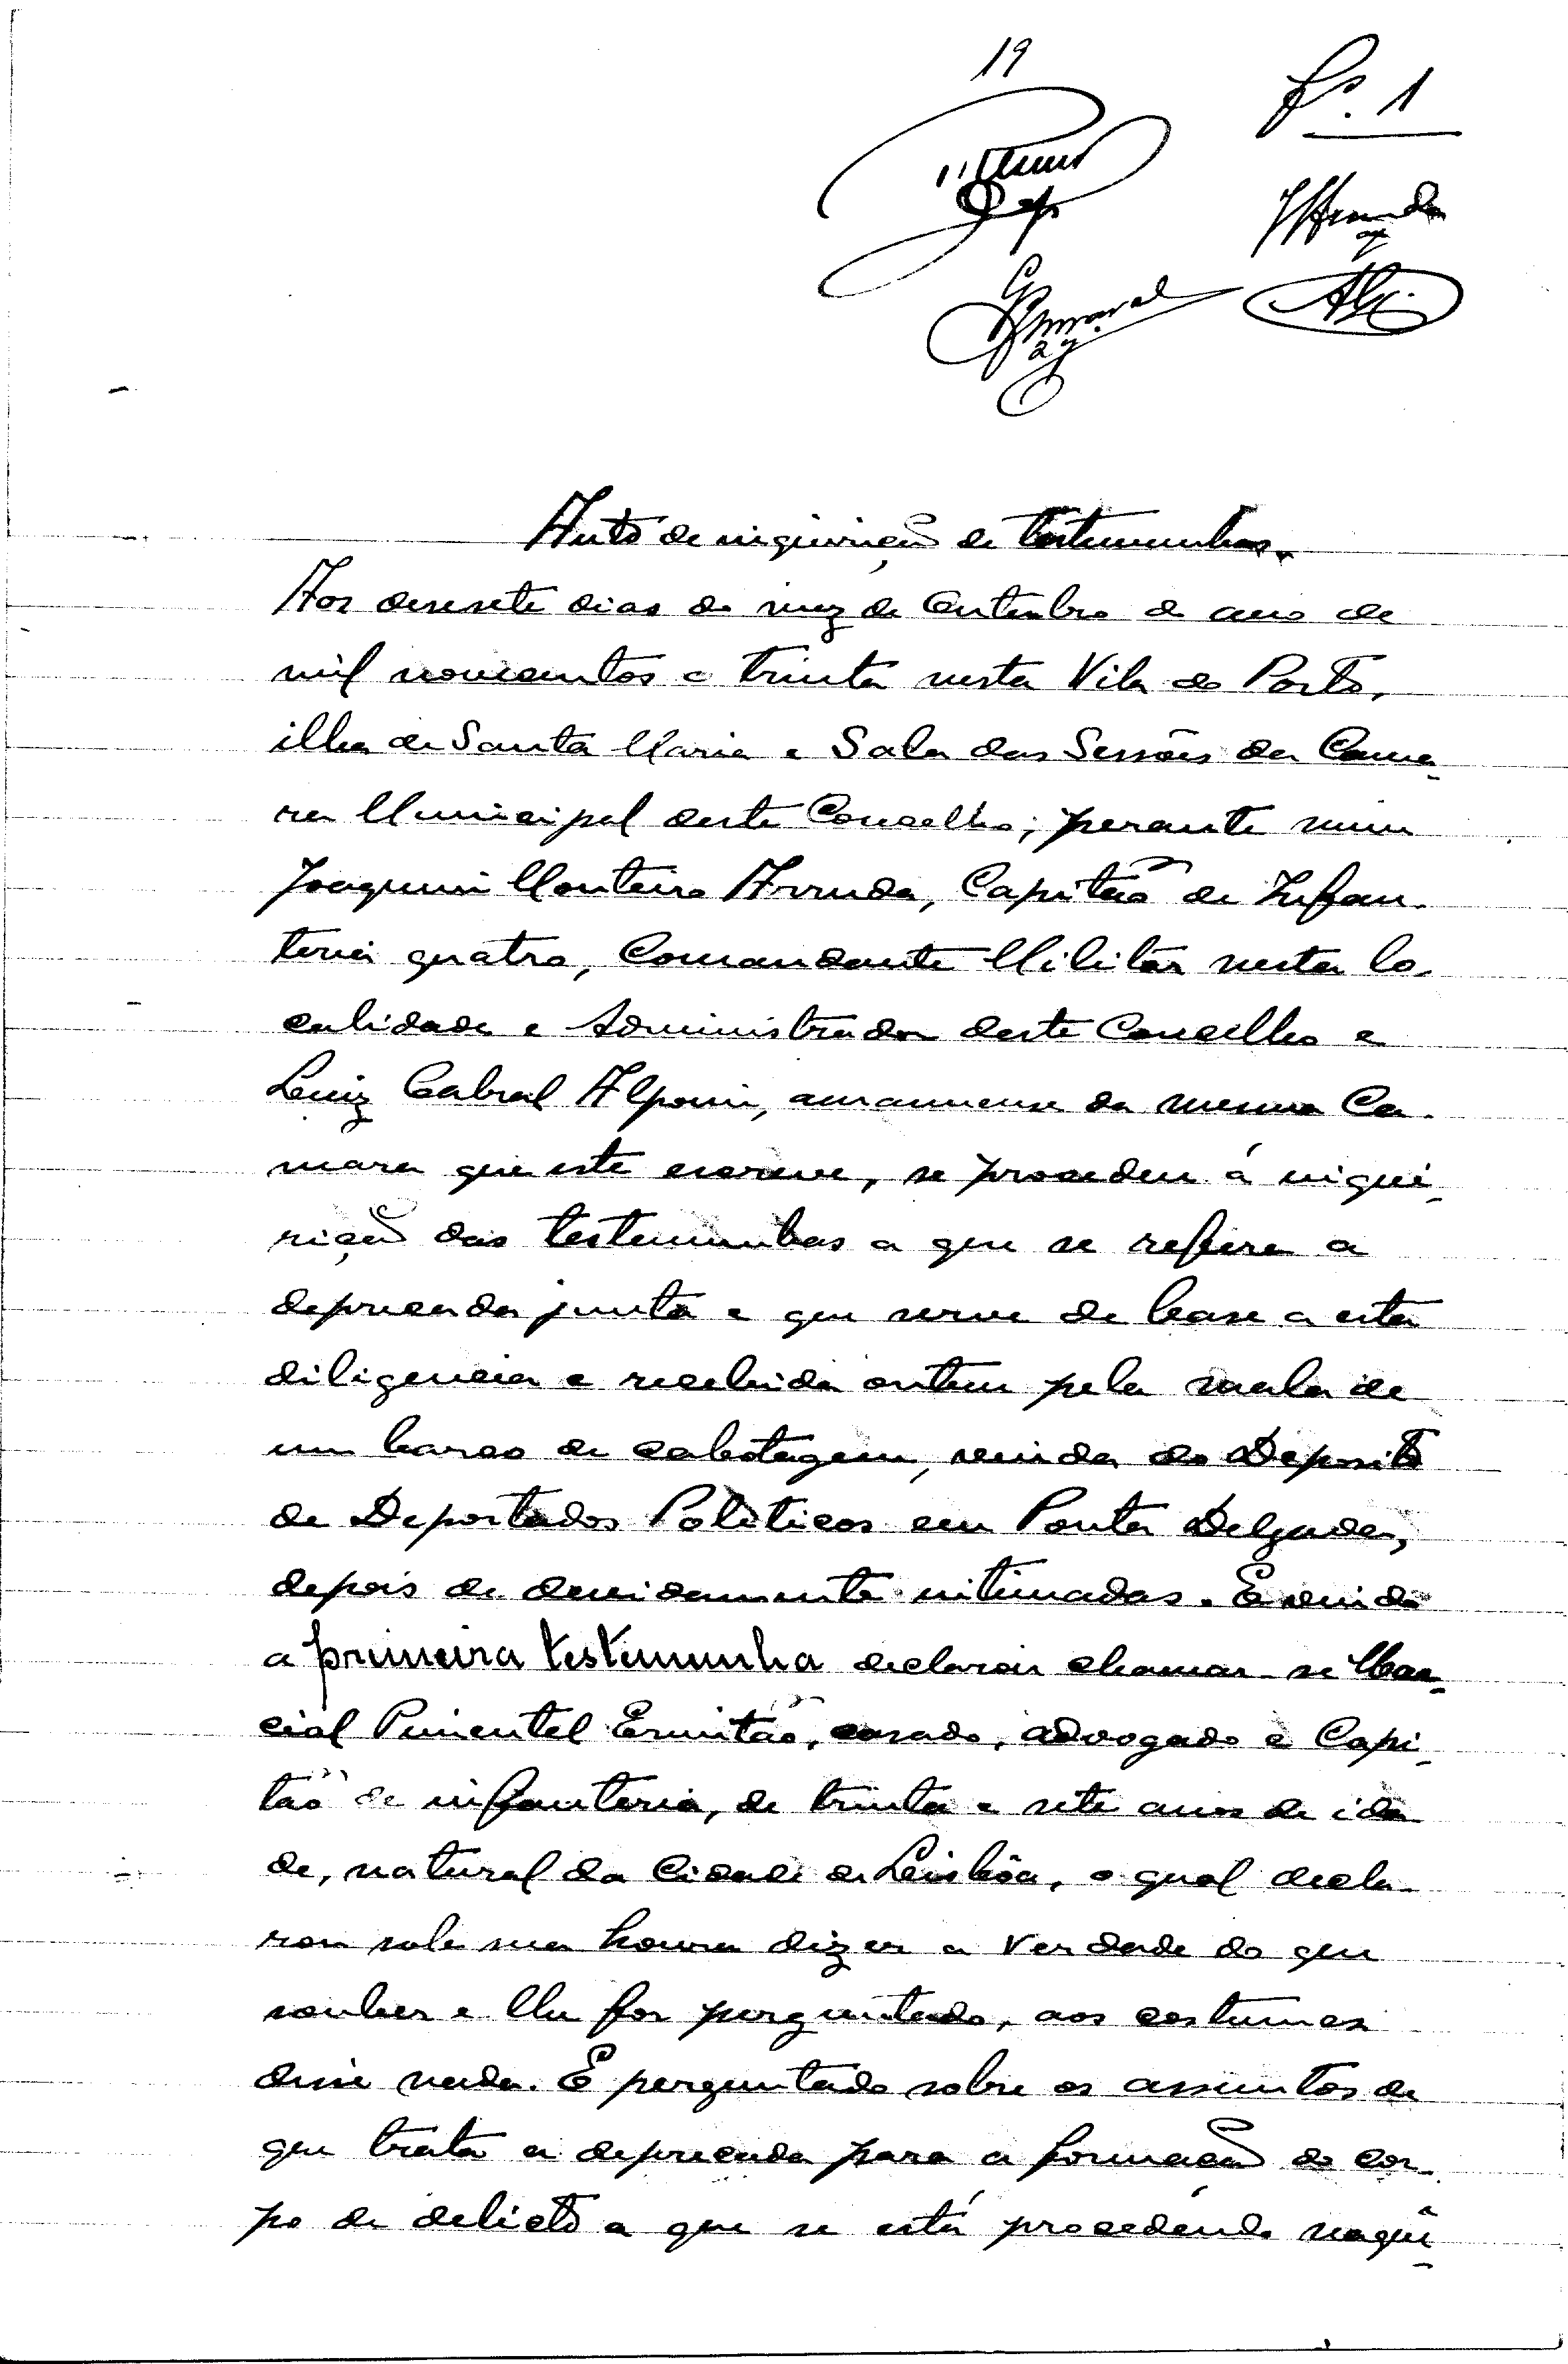 19
Fs. 1
Arruda
Amaral
Auto de inquirição de testemunhas.
Aos desesete dias do mez de Outubro do ano de
mil novecentos e trinta nesta Vila do Porto,
ilha de Santa Maria e Sala das Sessões da Cama-
ra Municipal deste Concelho; perante mim
Joaquim Monteiro Arruda, Capitão de Infan-
teria quatro, Comandante Militar nesta lo-
calidade e Administrador deste Concelho e
Luiz Cabral Alpoim, amanuense da mesma Ca-
mara que este escreve, se procedeu á inqui-
rição das testemunhas a que se refere a
deprecada junta e que serve de base a esta
diligencia e recebida ontem pela mala de
um barco de cabotagem, vinda do Deposito
de Deportados Politicos em Ponta Delgada,
depois de devidamente intimadas. E vinda
a primeira testemunha declarou chamar-se Mar-
cial Pimentel Ermitão, casado, advogado e Capi-
tão de infanteria, de trinta e sete anos de ida
de, natural da Cidade de Lisbôa, o qual decla-
rou sob sua honra dizer a verdade do que
souber e lhe for perguntado, aos costumes
disse nada. E perguntado sobre os assuntos de
que trata a deprecada para a formação do cor-
po de delicto a que se está procedendo naquê-